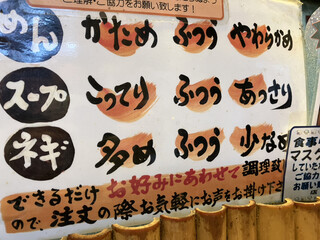 ご理解・ご協力をお願い致します！
めん かため ふつう やわらかめ
スープ こってり ふつう あっさり
ネギ 多め ふつう 少なめ
できるだけお好みにあわせて調理致
ので、注文の際お気軽にお声をお掛け下さ
食事
マスク
していた
ご協力
お願い